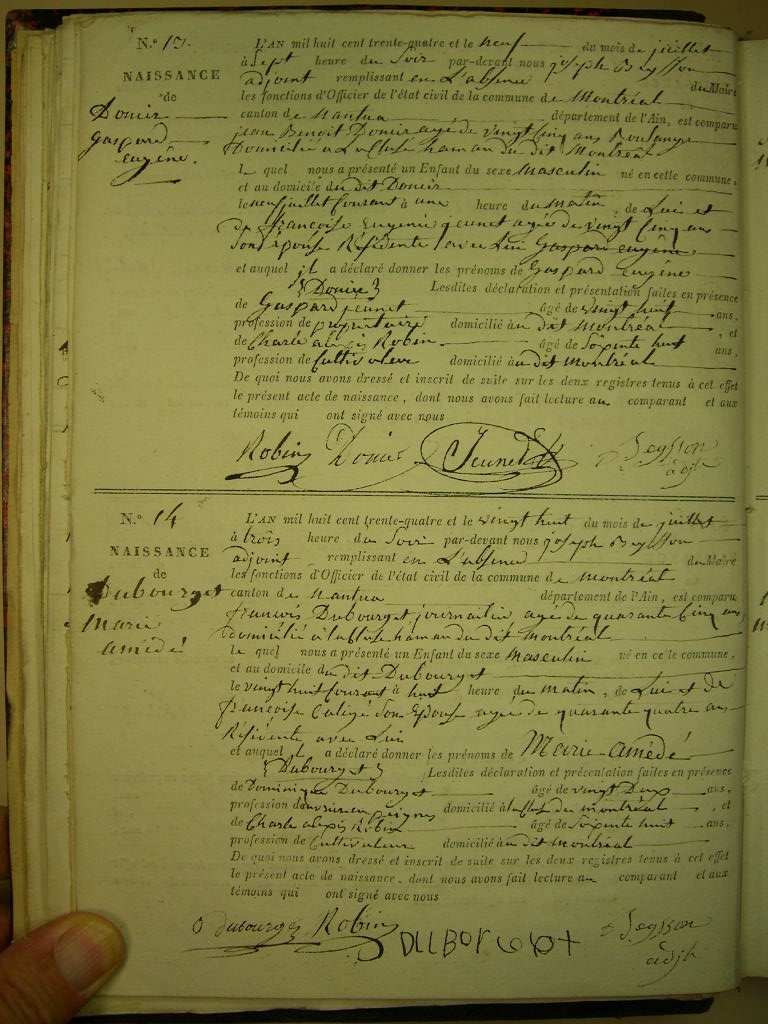 N.° 13.
NAISSANCE
de
Douir
Gaspard
eugêne
L'AN mil huit cent trente-quatre et le neuf du mois de juillet
à sept heure du Soir par-devant nous joseph Beysson
adjoint remplissant en L'absence du Maire
les fonctions d'Officier de l'état civil de la commune de Montréal
canton de Nantua département de l'Ain, est comparu
jean Benoit Douir agé de vingt cinq ans Boulanger
Domicilié a La Cluse hamau du dit Montréal
le quel nous a présenté un Enfant du sexe Masculin né en cette commune,
et au domicile du dit Douir
le neuf juillet Courant à une heure du Matin, de Lui et
de francoise Eugenie jeunet agée de vingt Cinq ans
Son épouse Résidente avec Lui Gaspard eugêne
et auquel il a déclaré donner les prénoms de Gaspard Eugêne
Douir Lesdites déclaration et présentation faites en présence
de Gaspard jeunet âgé de vingt huit ans,
profession de proprietaire domicilié au dit Montréal, et
de Charle alexis Robin âgé de Soixente huit ans,
profession de Cultivateur domicilié au dit Montréal
De quoi nous avons dressé et inscrit de suite sur les deux registres tenus à cet effet
le présent acte de naissance, dont nous avons fait lecture au comparant et aux
témoins qui ont signé avec nous
Robin Douir Jeunet Beysson
adjt
N.° 14
NAISSANCE
de
Dubourget
Marie
amédé
L'AN mil huit cent trente-quatre et le vingt huit du mois de juillet
à trois heure du Soir par-devant nous joseph Beysson
adjoint remplissant en L'absence du Maire
les fonctions d'Officier de l'état civil de la commune de Montréal
canton de Nantua département de l'Ain, est comparu
francois Dubourget journalier agé de quarante Cinq ans
Domicilié a la Cluse hamau du dit Montréal
le quel nous a présenté un Enfant du sexe Masculin né en cette commune,
et au domicile du dit Dubourget
le vingt huit Courant à huit heure du matin, de Lui et De
francoise Son Epouse agée de quarante quatre ans
Résidente avec Lui
et auquel il a déclaré donner les prénoms de Marie amédé
Dubourget Lesdites déclaration et présentation faites en présence
de Dominique Dubourget âgé de vingt Deux ans,
profession de ouvrier en peignes domicilié à la Cluse de montréal, et
de Charle alexis Robin âgé de Soixente huit ans,
profession de Cultivateur domicilié au dit Montréal
De quoi nous avons dressé et inscrit de suite sur les deux registres tenus à cet effet
le présent acte de naissance, dont nous avons fait lecture au comparant et aux
témoins qui ont signé avec nous
Robin Beysson
adjt